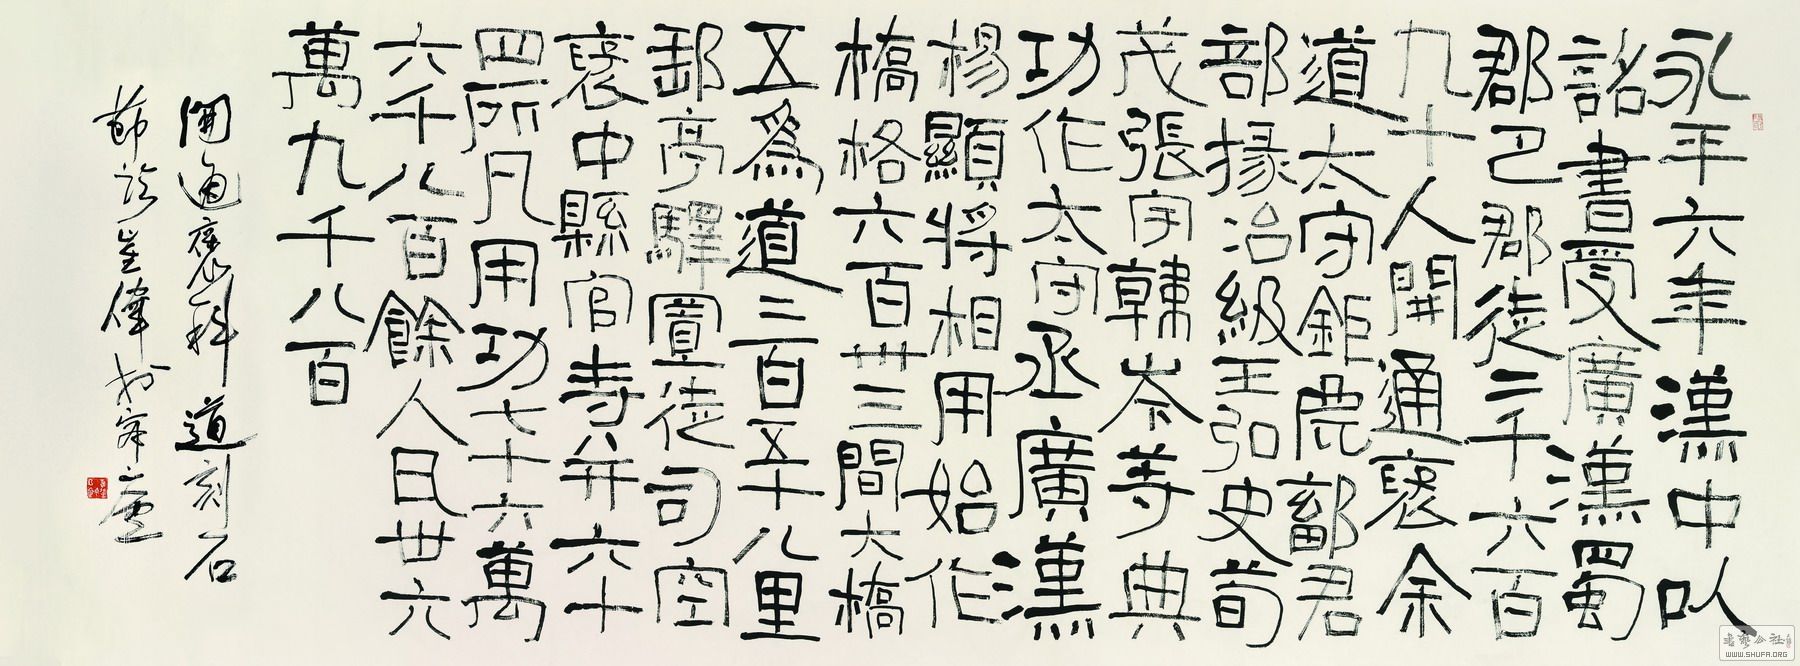 永平六年漢中以
詔書受廣漢蜀
郡巴郡徒二千六百
九十人開通褒余
道太守鉅鹿鄐君
部掾治級王弘史荀
茂張宇韓岑等典
功作太守丞廣漢
楊顯將相用始作
橋格六百卅三間大橋
五爲道三百五十八里
郵亭驛置徒司空
褒中縣官寺并六十
四所凡用功七十六萬
六千八百餘人日卅六
萬九千八百
開通褒斜道刻石
節臨崔偉於廬
書藝公社
WWW.SHUFA.ORG